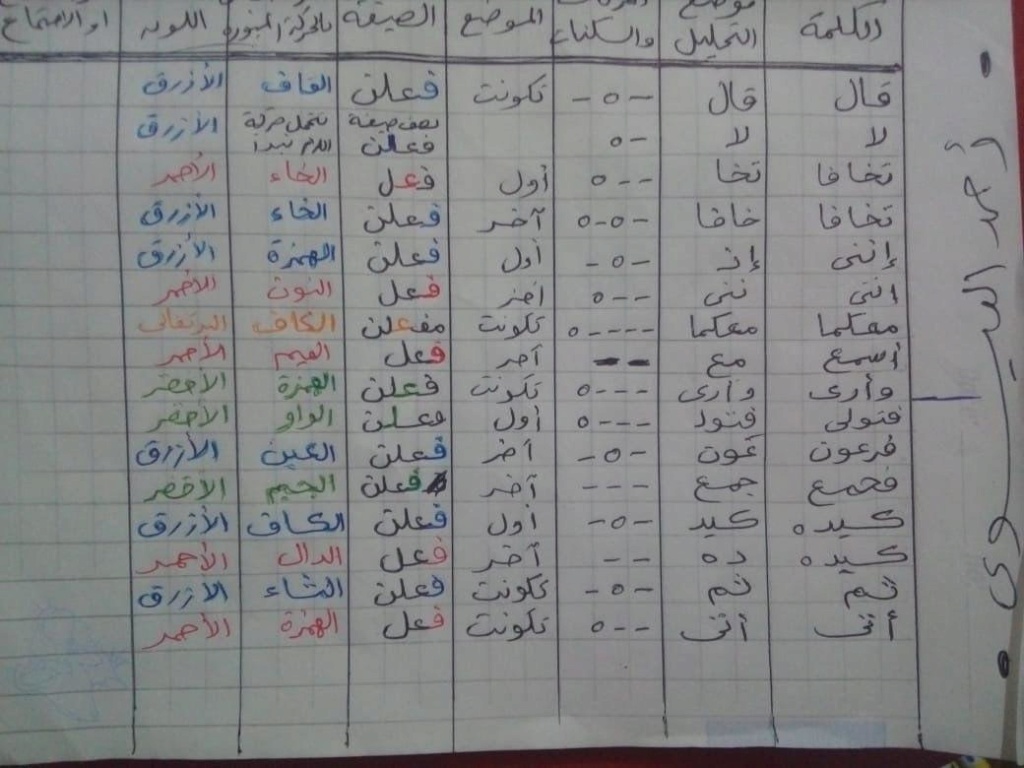 الكلمة موضع التحليل والسكنات الموضع الصيغة بالحركة اللون او الاجتماع
قال قال - ٥ - تكونت فعلن القاف الأزرق
لا لا - ٥ نصف صيغة فعلن تكمل حركة اللام الأزرق
تخافا تخا - - ٥ أول فعل الخاء الأحمر
تخافا خافا - ٥ - ٥ آخر فعلن الخاء الأزرق
إننى إن - ٥ - أول فعلن الهمزة الأزرق
إننى ننى - - ٥ آخر فعل النون الأحمر
معكما معكما - - - - ٥ تكونت مفعلن الكاف البرتقالى
أسمع مع - - آخر فعل الميم الأحمر
وأرى وأرى - - - ٥ تكونت فعلن الهمزة الأخضر
فتولى فتول - - - ٥ أول فعلن الواو الأخضر
فرعون عون - ٥ - آخر فعلن العين الأزرق
فجمع جمع - - - آخر فعلن الجيم الأخضر
كيده كيد - ٥ - أول فعلن الكاف الأزرق
كيده ده - - آخر فعل الدال الأحمر
ثم ثم - ٥ - تكونت فعلن الثاء الأزرق
أتى أتى - - ٥ تكونت فعل الهمزة الأحمر